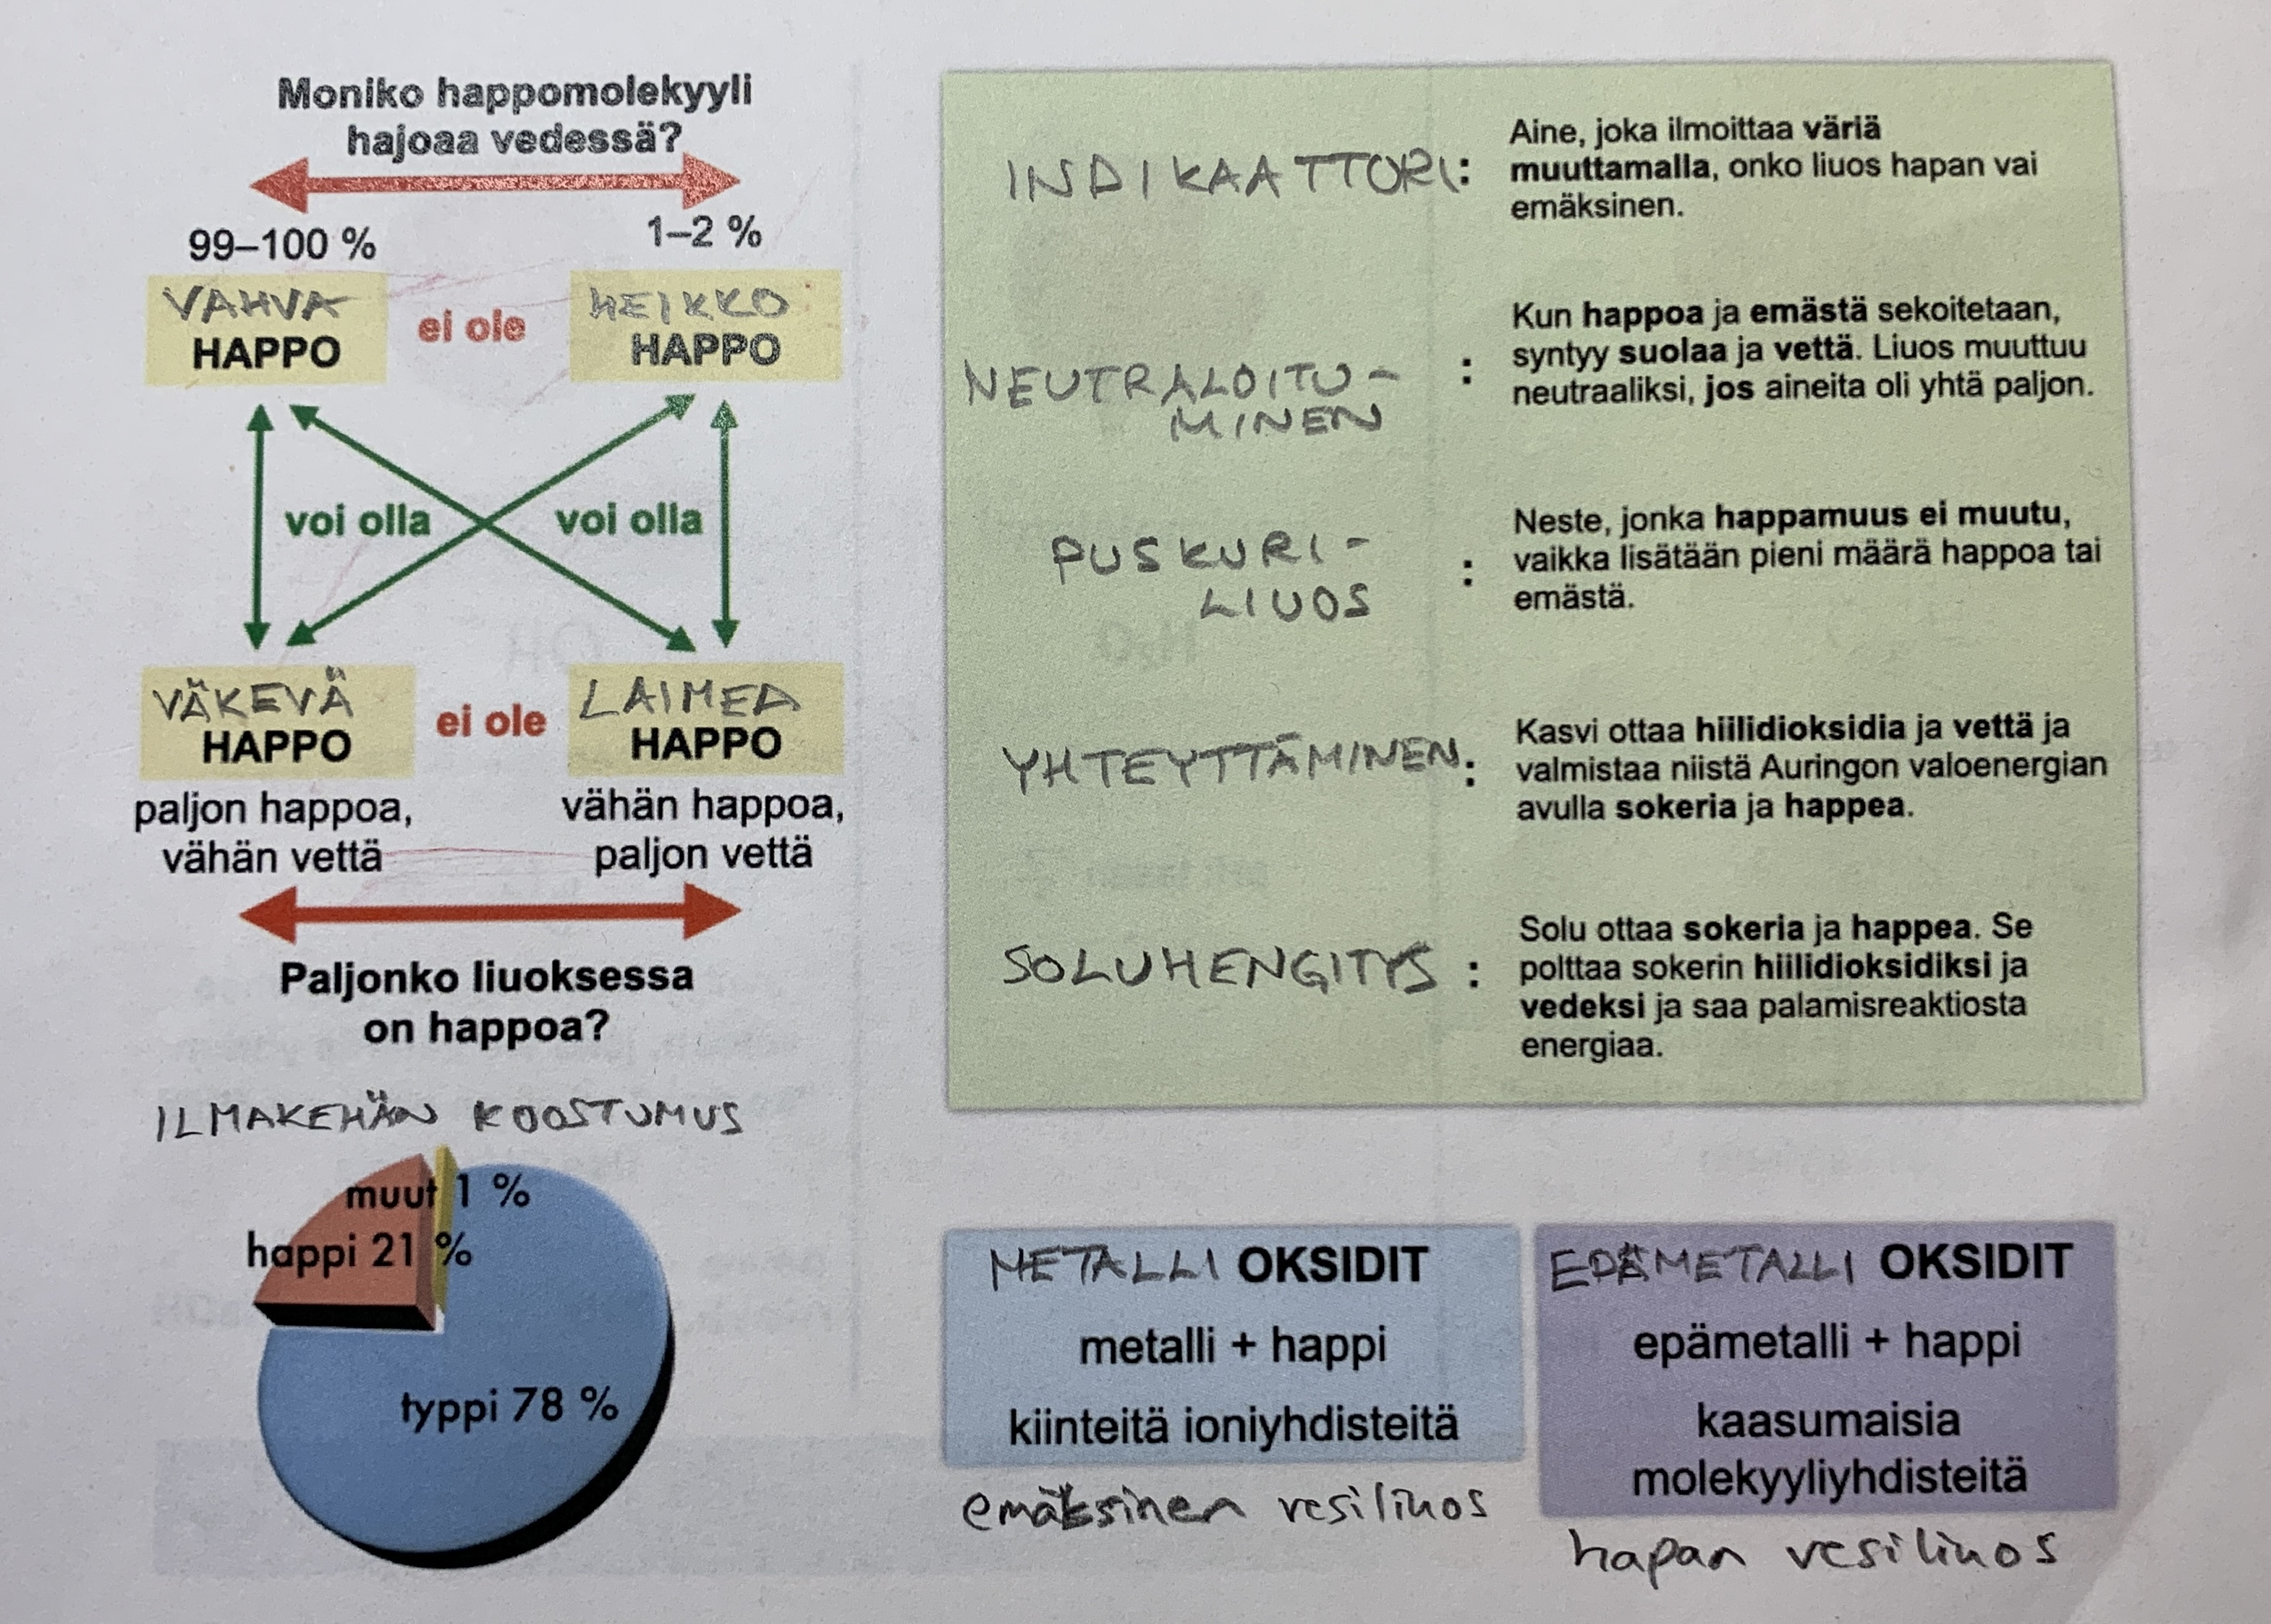 Moniko happomolekyyli
hajoaa vedessä?
99–100 %
1–2 %
VAHVA
HAPPO
ei ole
HEIKKO
HAPPO
voi olla
voi olla
VÄKEVÄ
HAPPO
ei ole
LAIMEA
HAPPO
paljon happoa,
vähän vettä
vähän happoa,
paljon vettä
Paljonko liuoksessa
on happoa?
ILMAKEHÄN KOOSTUMUS
muut 1 %
happi 21 %
typpi 78 %
INDIKAATTORI:
Aine, joka ilmoittaa väriä
muuttamalla, onko liuos hapan vai
emäksinen.
NEUTRALOITU-
MINEN
:
Kun happoa ja emästä sekoitetaan,
syntyy suolaa ja vettä. Liuos muuttuu
neutraaliksi, jos aineita oli yhtä paljon.
PUSKURI-
LIUOS
:
Neste, jonka happamuus ei muutu,
vaikka lisätään pieni määrä happoa tai
emästä.
YHTEYTTÄMINEN:
Kasvi ottaa hiilidioksidia ja vettä ja
valmistaa niistä Auringon valoenergian
avulla sokeria ja happea.
SOLUHENGITYS :
Solu ottaa sokeria ja happea. Se
polttaa sokerin hiilidioksidiksi ja
vedeksi ja saa palamisreaktiosta
energiaa.
METALLI OKSIDIT
metalli + happi
kiinteitä ioniyhdisteitä
emäksinen vesiliuos
EPÄMETALLI OKSIDIT
epämetalli + happi
kaasumaisia
molekyyliyhdisteitä
hapan vesiliuos